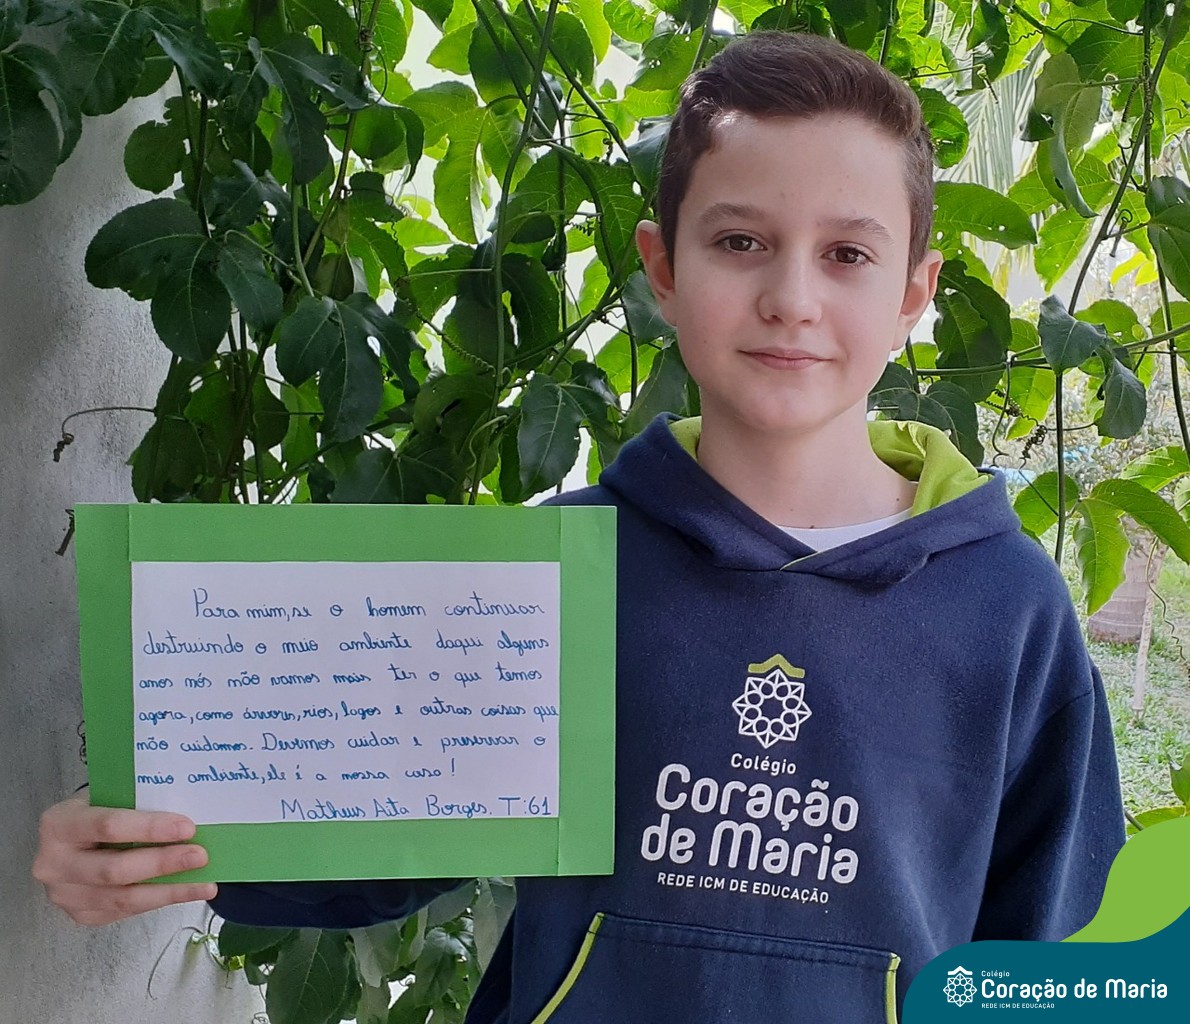 Para mim, se o homem continuar
destruindo o meio ambiente daqui alguns
anos nós não vamos mais ter o que temos
agora, como árvores, rios, lagos e outras coisas que
não cuidamos. Devemos cuidar e preservar o
meio ambiente, ele é a nossa casa!
Matheus Aita Borges. T:61
Colégio
Coração
de Maria
REDE ICM DE EDUCAÇÃO
Colégio
Coração de Maria
REDE ICM DE EDUCAÇÃO